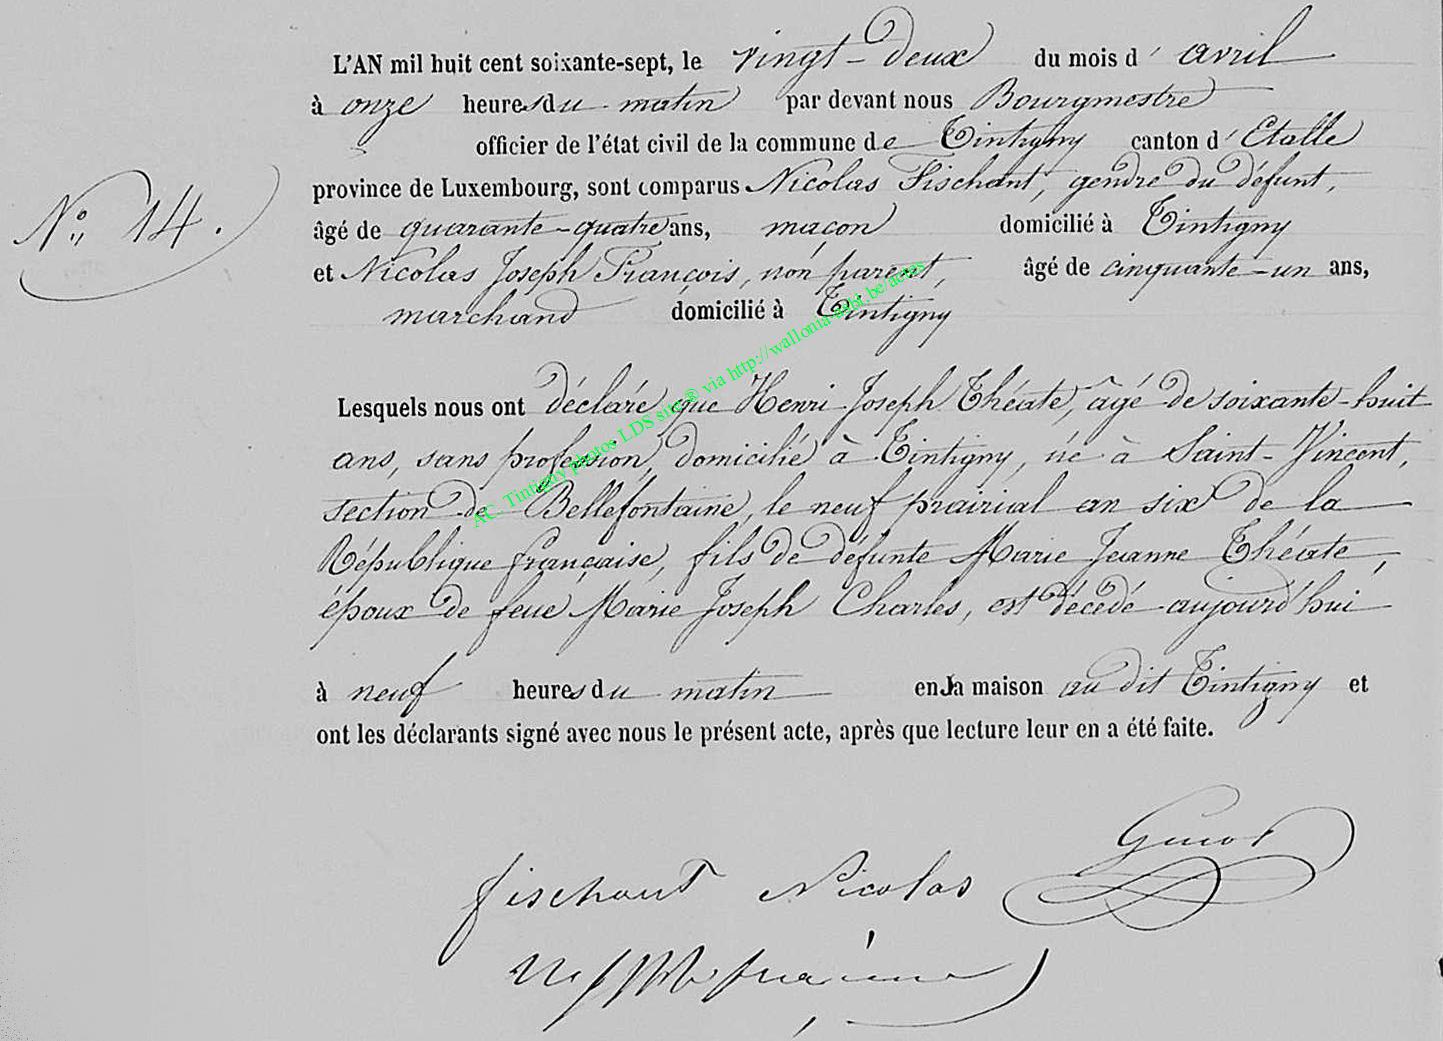 L'AN mil huit cent soixante-sept, le vingt-deux du mois d' avril
à onze heures du matin par devant nous Bourgmestre
officier de l'état civil de la commune de Tintigny canton d' Etalle
province de Luxembourg, sont comparus Nicolas Fischant, gendre du défunt,
N° 14.
âgé de quarante-quatre ans, maçon domicilié à Tintigny
et Nicolas Joseph François, non parent, âgé de cinquante-un ans,
marchand domicilié à Tintigny
Lesquels nous ont déclaré que Henri Joseph Théate, âgé de soixante-huit
ans, sans profession, domicilié à Tintigny, né à Saint-Vincent,
section de Bellefontaine, le neuf prairial an six de la
République française, fils de défunte Marie Jeanne Théate,
époux de feue Marie Joseph Charles, est décédé aujourd'hui
à neuf heures du matin en la maison au dit Tintigny et
ont les déclarants signé avec nous le présent acte, après que lecture leur en a été faite.
AC Tintigny photos LDS site ® via http://wallonia-asbl.be/actes
fischant Nicolas